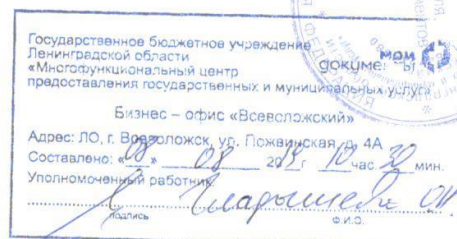 Государственное бюджетное учреждение
Ленинградской области
«Многофункциональный центр
предоставления государственных и муниципальных услуг»
МОИ
ДОКУМЕНТЫ
Бизнес – офис «Всеволожский»
Адрес: ЛО, г. Всеволожск, ул. Пожвинская, д. 4А
Составлено: «08» 08 20 г. 10 час. 30 мин.
Уполномоченный работник
подпись
Ф.И.О.